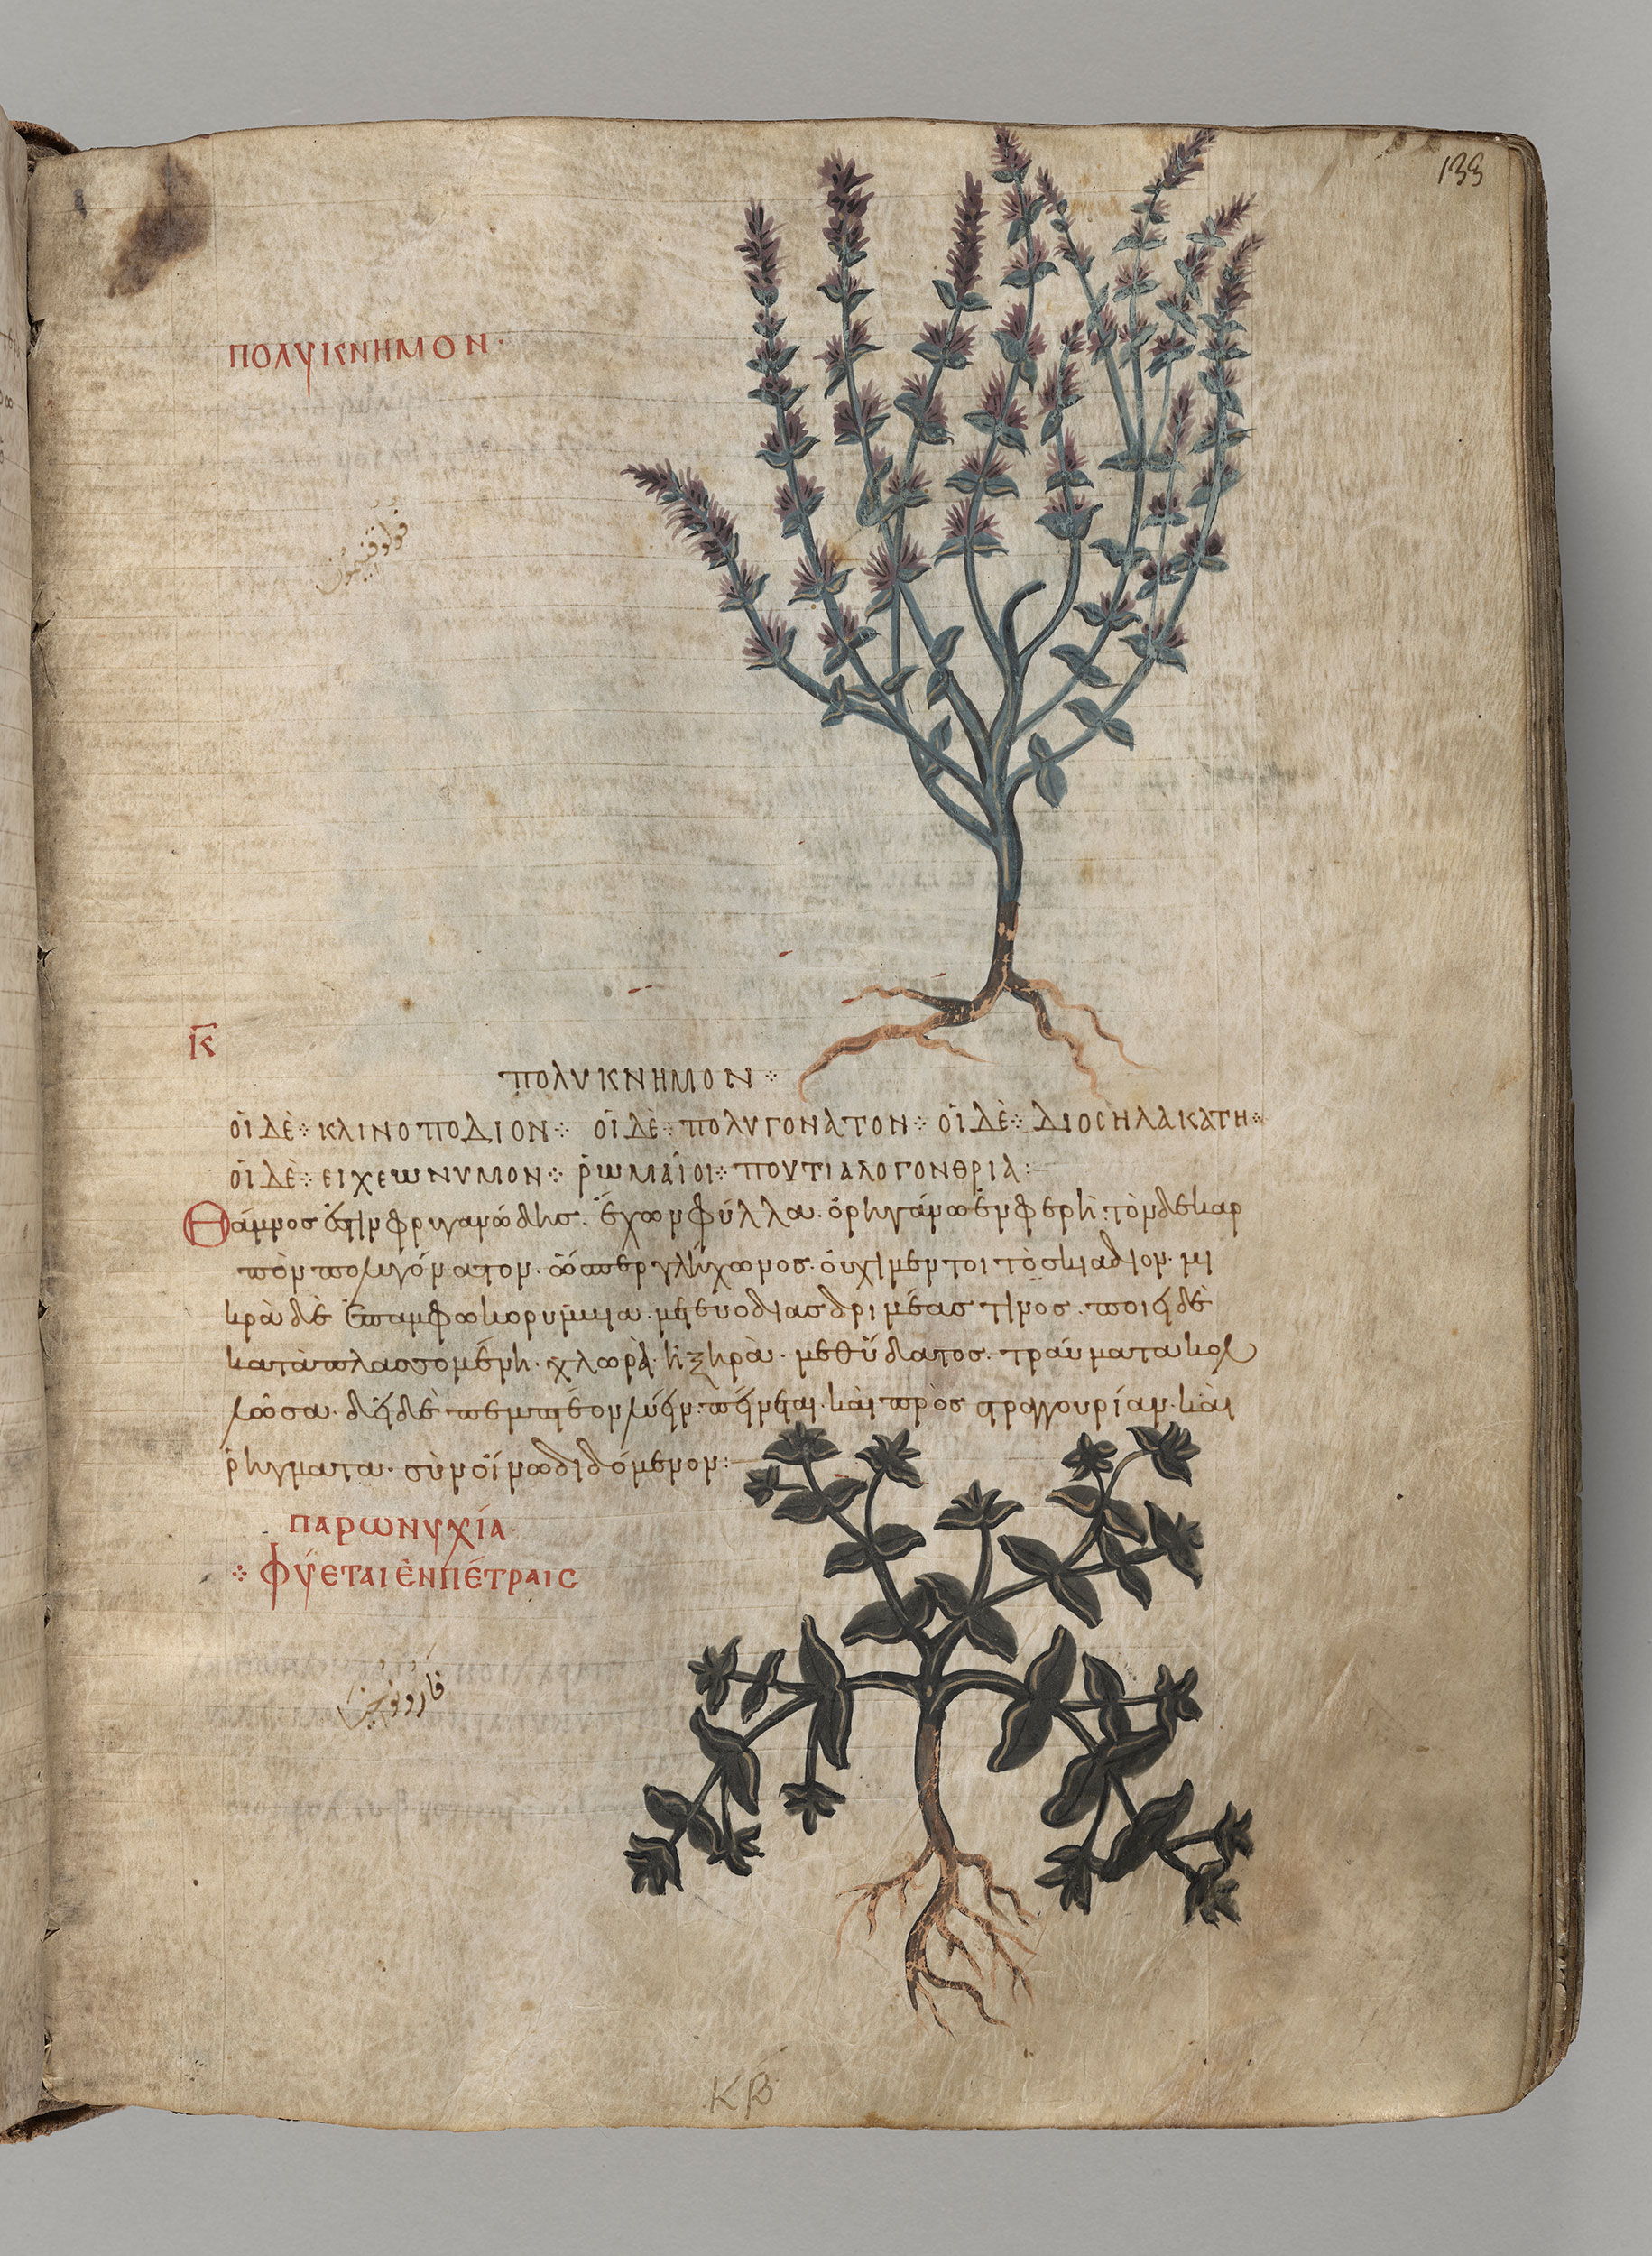 133
ΠΟΛΥΚΝΗΜΟΝ·
فولوقنيمون
Κ
ΠΟΛΥΚΝΗΜΟΝ
ΟἱΔὲ ΚΛΙΝΟΠΟΔΙΟΝ ΟἱΔὲ ΠΟΛΥΓΟΝΑΤΟΝ ΟἱΔὲ ΔΙΟCΗΛΑΚΑΤΗ
ΟἱΔὲ ΕΙΧΕΩΝΥΜΟΝ ῥΩΜΑῖΟΙ ΠΟΥΤΙΑΛΟΓΟΝΘΡΙΑ:
Θάμνος ἐστὶν φρυγανώδης· ἔχων φύλλα· ὀρηγάνω ἐμφερῆ· τὸν δὲ καρ
πὸν πολυγόνατον· ὥσπερ γλήχωνος· ὀυχὶ μέντοι τὸ σκιάδιον· μι
κρὰ δὲ ἐπ' ἄμφω κορύμμια· μετ' ευοδίας δριμέας τινος· ποιεῖ δὲ
καταπλασσομένη· χλωρὰ· ἢ ξηρὰ· μεθ' ὕδατος· τράυματα κολ
λῶσα· δεῖ δὲ πεμπτέον λύειν· πίνεται· καὶ πρὸς στραγγουρίαν· καὶ
ῥήγματα· σὺν ὀίνω διδόμενον:
ΠΑΡΩΝΥΧΙΑ·
ΦΥΕΤΑΙ ἐΝ ΠΕΤΡΑΙC
فارونوخيا
ΚΒ